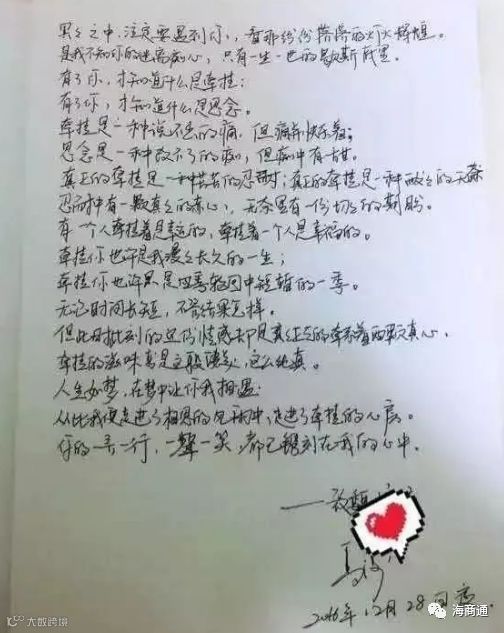 冥冥之中,注定要遇到你,看那纷纷攘攘的灯火辉煌。
是我不知你的迷离痴心,只有一生一世的歇斯底里。
有了你,才知道什么是牵挂;
有了你,才知道什么是思念。
牵挂是一种说不出的痛,但痛并快乐着;
思念是一种放不了的痴,但痴中有甜。
真正的牵挂是一种苦苦的忍耐;真正的牵挂是一种酸酸的无奈
忍耐中有一颗真真的素心,无奈里有一份切切的期盼。
有一个人牵挂着是幸运的,牵挂着一个人是幸福的。
牵挂你也许是我漫漫长久的一生;
牵挂你也许只是四季轮回中短暂的一季。
无论时间长短,不管结果怎样。
但此时此刻的这份情感却是真真正正的牵系着两颗真心。
牵挂的滋味真是这般凄美,这么纯真。
人生如梦,在梦中让你我相遇:
从此我便走进了相思的包围中,走进了牵挂的心房。
你的一言一行,一颦一笑,都已镌刻在我的心中。
2016年12月28日
海商通
大数跨境